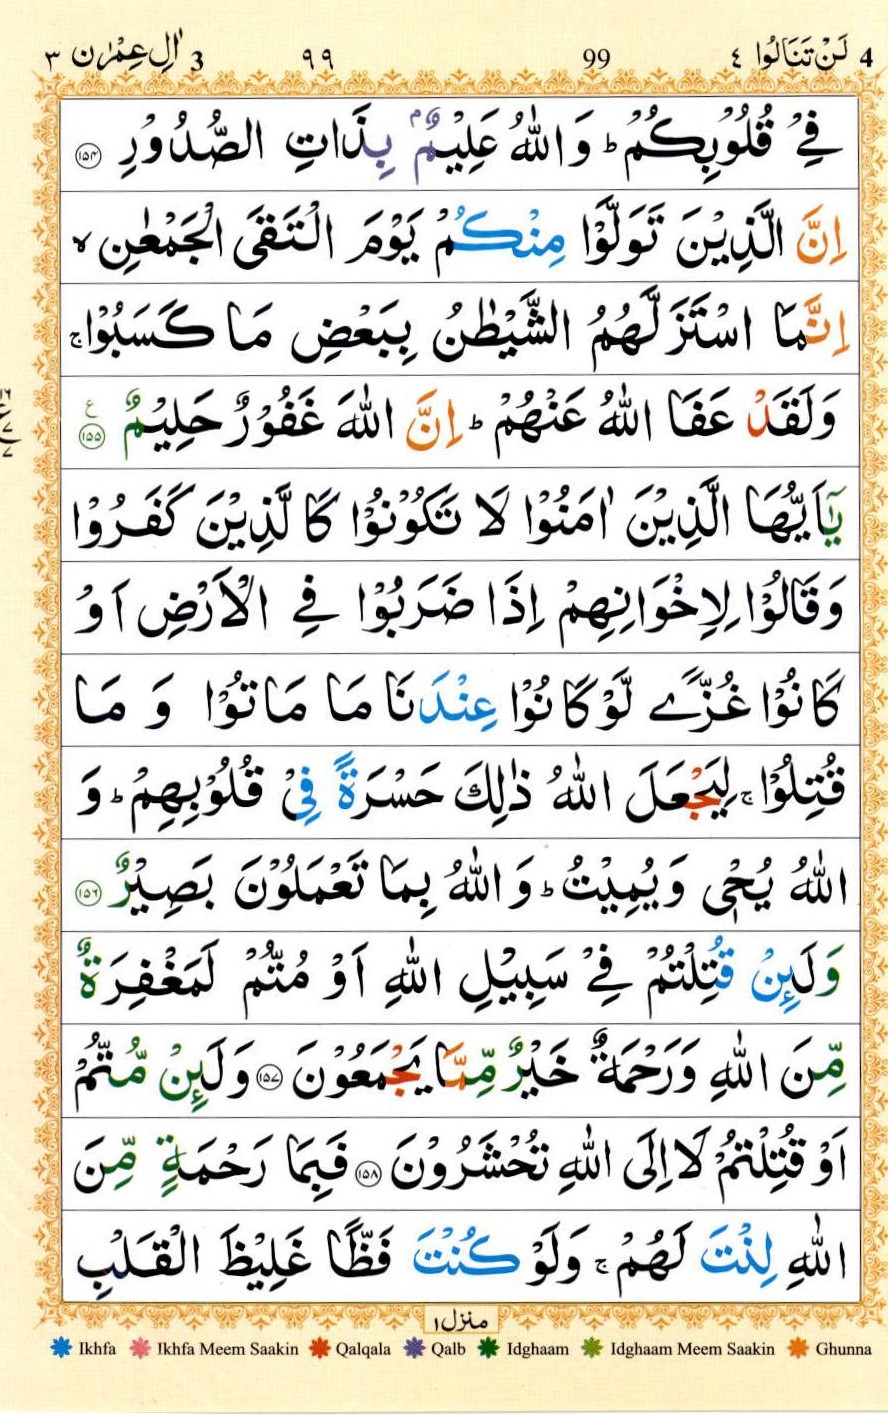 4 لَنْ تَنَالُوْا ٤ 99 ٩٩ 3 اٰلِ عِمْرٰن ٣
فِیْ قُلُوْبِكُمْ ؕ وَاللّٰهُ عَلِیْمٌۢ بِذَاتِ الصُّدُوْرِ ﴿۱۵۴﴾
اِنَّ الَّذِیْنَ تَوَلَّوْا مِنْكُمْ یَوْمَ الْتَقَی الْجَمْعٰنِ ۙ
اِنَّمَا اسْتَزَلَّهُمُ الشَّیْطٰنُ بِبَعْضِ مَا كَسَبُوْا ۚ
وَلَقَدْ عَفَا اللّٰهُ عَنْهُمْ ؕ اِنَّ اللّٰهَ غَفُوْرٌ حَلِیْمٌ ﴿۱۵۵﴾ ع
یٰۤاَیُّهَا الَّذِیْنَ اٰمَنُوْا لَا تَكُوْنُوْا كَالَّذِیْنَ كَفَرُوْا
وَقَالُوْا لِاِخْوَانِهِمْ اِذَا ضَرَبُوْا فِی الْاَرْضِ اَوْ
كَانُوْا غُزًّی لَّوْ كَانُوْا عِنْدَنَا مَا مَاتُوْا وَ مَا
قُتِلُوْا ۚ لِیَجْعَلَ اللّٰهُ ذٰلِكَ حَسْرَةً فِیْ قُلُوْبِهِمْ ؕ وَ
اللّٰهُ یُحْیٖ وَیُمِیْتُ ؕ وَاللّٰهُ بِمَا تَعْمَلُوْنَ بَصِیْرٌ ﴿۱۵۶﴾
وَلَىِٕنْ قُتِلْتُمْ فِیْ سَبِیْلِ اللّٰهِ اَوْ مُتُّمْ لَمَغْفِرَةٌ
مِّنَ اللّٰهِ وَرَحْمَةٌ خَیْرٌ مِّمَّا یَجْمَعُوْنَ ﴿۱۵۷﴾ وَلَىِٕنْ مُّتُّمْ
اَوْ قُتِلْتُمْ لَاۡاِلَی اللّٰهِ تُحْشَرُوْنَ ﴿۱۵۸﴾ فَبِمَا رَحْمَةٍ مِّنَ
اللّٰهِ لِنْتَ لَهُمْ ۚ وَلَوْ كُنْتَ فَظًّا غَلِیْظَ الْقَلْبِ
منزل ۱
Ikhfa Ikhfa Meem Saakin Qalqala Qalb Idghaam Idghaam Meem Saakin Ghunna